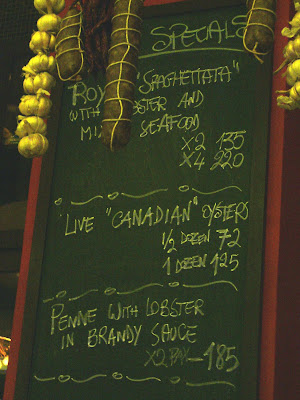 SPECIALS
ROY "SPAGHETTATA"
WITH LOBSTER AND
MIX SEAFOOD
X2 135
X4 220
LIVE "CANADIAN" OYSTERS
1/2 DOZEN 72
1 DOZEN 125
PENNE WITH LOBSTER
IN BRANDY SAUCE
X2 185